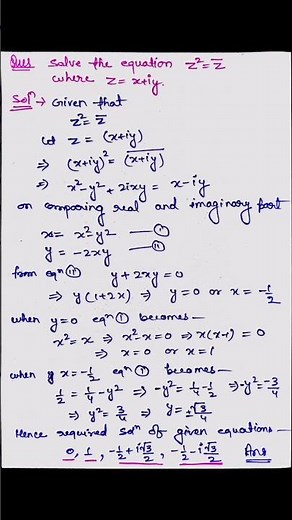 Ques Solve the equation z² = z̅
where z = x+iy.
Solⁿ → Given that
z² = z̅
let z = (x+iy)
⇒ (x+iy)² = \overline{(x+iy)}
⇒ x²-y²+2ixy = x-iy
on comparing real and imaginary part
x = x²-y² —— (i)
y = -2xy —— (ii)
from eqⁿ (ii) y+2xy=0
⇒ y(1+2x) ⇒ y=0 or x=-1/2
when y=0 eqⁿ (i) becomes—
x²=x ⇒ x²-x=0 ⇒ x(x-1)=0
⇒ x=0 or x=1
when y x=-1/2 eqⁿ (i) becomes—
1/2 = 1/4 - y² ⇒ -y² = 1/4 - 1/2 ⇒ -y² = -3/4
⇒ y² = 3/4 ⇒ y = ±√3/4
Hence required solⁿ of given equations—
0, 1, -1/2 + i√3/2, -1/2 - i√3/2 Ans